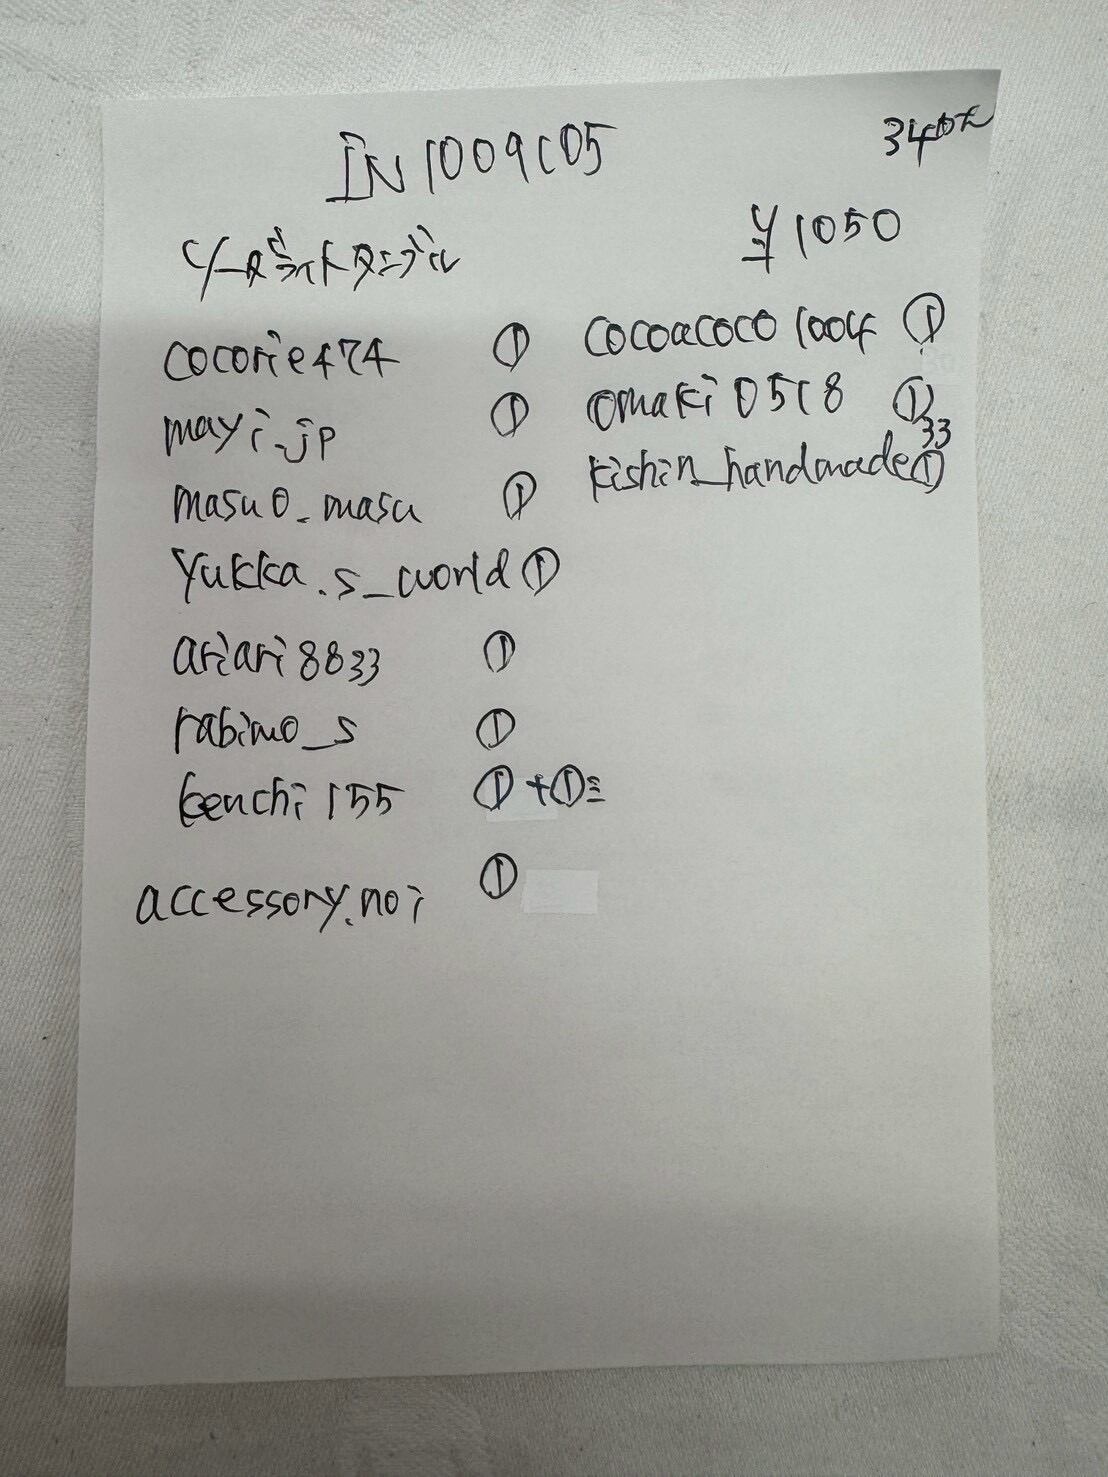 IN1009105
¥1050
cocorie474 ①
mayi.jp ①
masuo_masu ①
yukka.s_world ①
ariari8833 ①
rabimo_s ①
kenchi155 ①+①
accessory.noi ①
cocoacoco1004 ①
omaki0518 ①
33
kishin_handmade ①